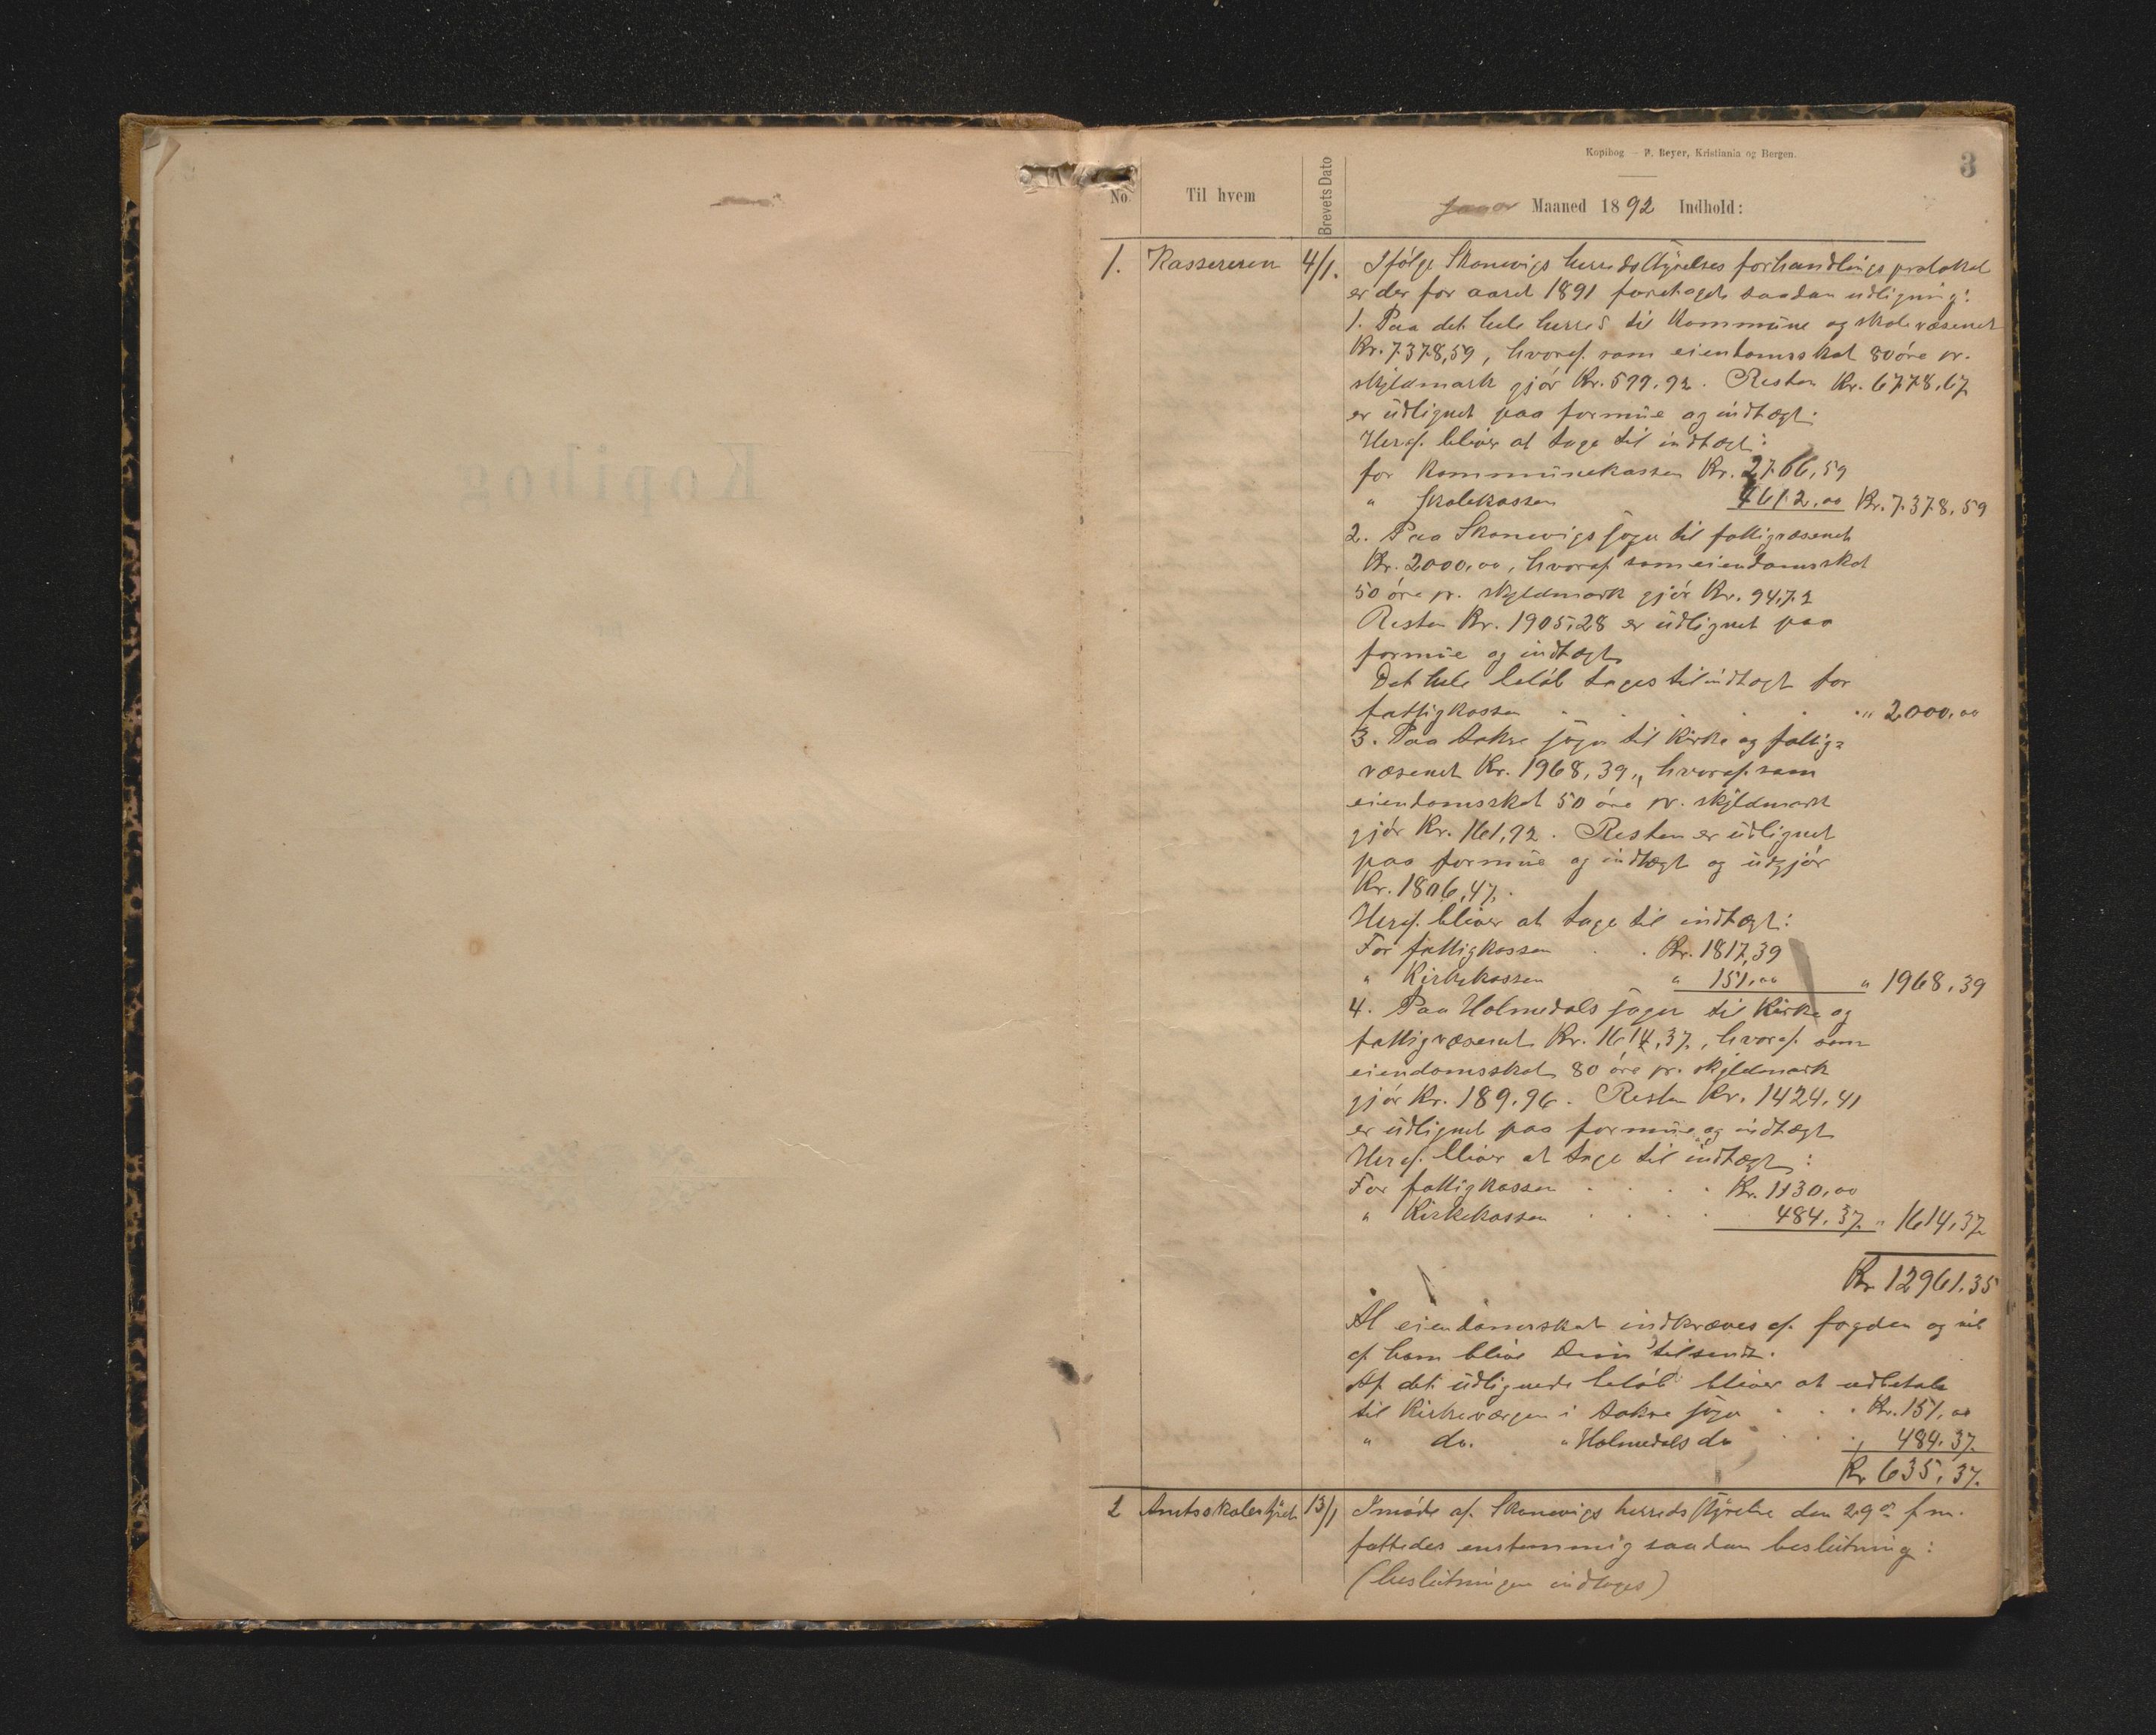 Kopibog
Kopibog – F. Beyer, Kristiania og Bergen.
3
No. Til hvem Brevets Dato Januar Maaned 1892 Indhold:
1. Kassereren 4/1. Ifølge Skonevigs herredsstyrelses forhandlingsprotokol
er der for aaret 1891 foretaget saadan udligning:
1. Paa det hele herred til kommune og skolevæsenet
Kr. 7378,59, hvoraf som eiendomsskat 80 øre pr.
skyldmark gjør Kr. 599.92. Resten Kr. 6778,67
er udlignet paa formue og indtægt.
Heraf bliver at tage til indtægt:
for Kommunekassen Kr. 2766,59
" Skolekassen 4612,00 Kr. 7378,59
2. Paa Skonevigs sogn til fattigvæsenet
Kr. 2000,00, hvoraf som eiendomsskat
50 øre pr. skyldmark gjør Kr. 94,72
Resten Kr. 1905,28 er udlignet paa
formue og indtægt
Det hele beløb tages til indtægt for
fattigkassen . . . . " 2000,00
3. Paa Aakre sogn til Kirke og fattig=
væsenet Kr. 1968,39, hvoraf som
eiendomsskat 50 øre pr. skyldmark
gjør Kr. 161,92. Resten er udlignet
paa formue og indtægt og udgjør
Kr. 1806,47.
Heraf bliver at tage til indtægt:
For fattigkassen . . Kr. 1817,39
" Kirkekassen " 151,00 " 1968,39
4. Paa Holmedals sogn til Kirke og
fattigvæsenet Kr. 1614,37, hvoraf som
eiendomsskat 80 øre pr. skyldmark
gjør Kr. 189,96. Resten Kr. 1424,41
er udlignet paa formue og indtægt
Heraf bliver at tage til indtægt:
For fattigkassen . . . . Kr. 1130,00
" Kirkekassen . . . . 484,37 " 1614,37
Kr. 12961,35
Al eiendomsskat indkræves af fogden og vil
af ham blive Dem tilsendt.
Af det udlignede beløb bliver at udbetale
til Kirkeværgen i Aakre sogn . . . Kr. 151,00
" do. " Holmedals do . . . " 484,37
Kr 635,37.
2 Amtsskolestyret 13/1 I møde af Skonevigs herredsstyrelse den 29de f.m.
fattedes enstemmig saadan beslutning:
(beslutningen indtages)